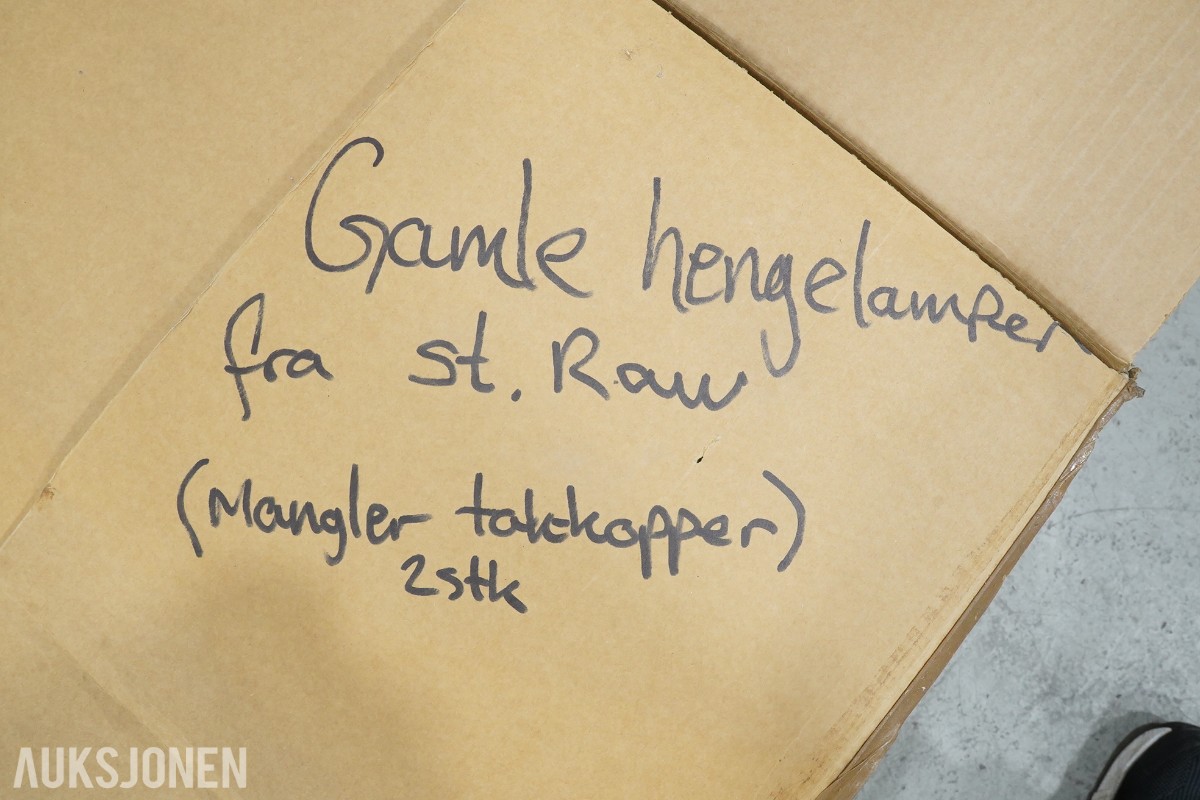 Gamle hengelamper
fra st. Raw
(Mangler takkopper)
2stk
AUKSJONEN